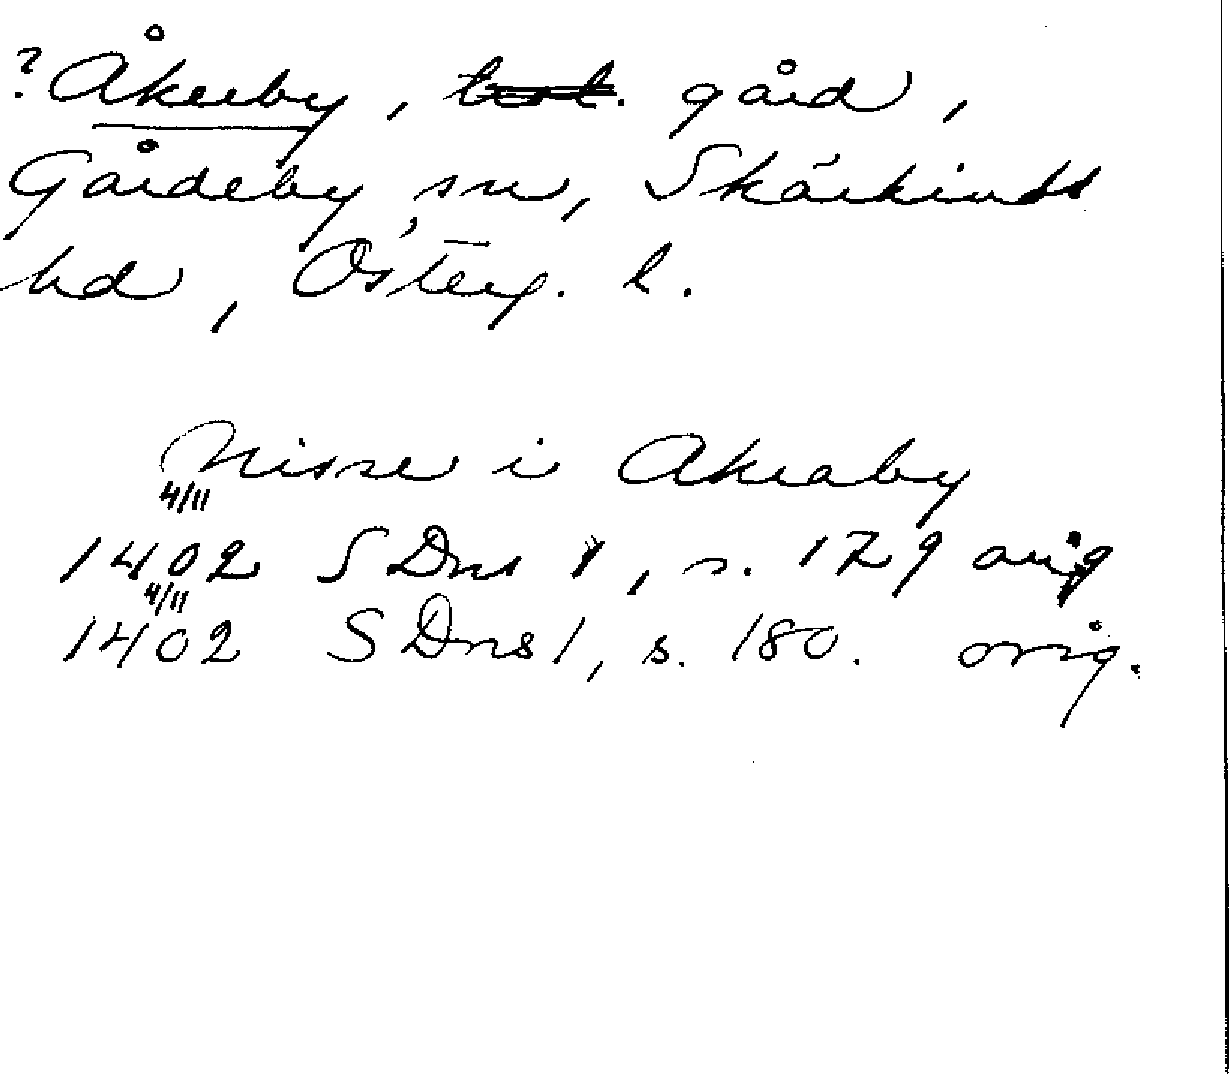 ? Åkerby, gård,
Gårdeby sn, Skärkinds
hd, Österg. l.
Nisse i Akraby
4/11
1402 SDns 1, s. 179 orig
4/11
1402 SDns 1, s. 180. orig.